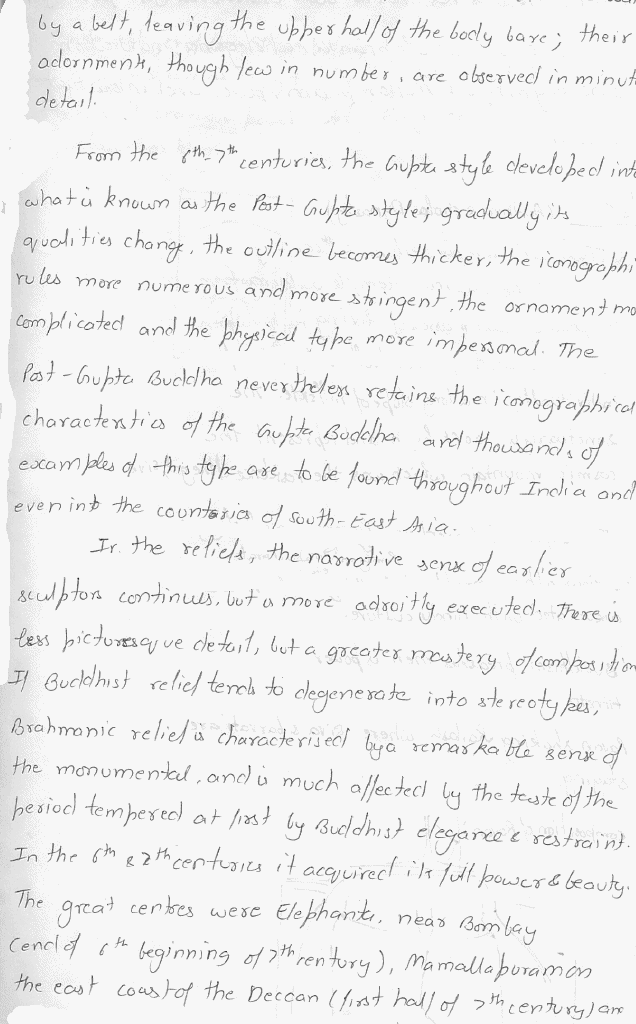 by a belt, leaving the upper half of the body bare; their
adornments, though few in number, are observed in minut
detail.
From the 6th-7th centuries, the Gupta style developed int
what is known as the Post-Gupta style; gradually its
qualities change, the outline becomes thicker, the iconographi
rules more numerous and more stringent, the ornament mo
complicated and the physical type more impersonal. The
Post-Gupta Buddha nevertheless retains the iconographical
characterstics of the Gupta Buddha and thousands of
examples of this type are to be found throughout India and
even into the countories of South-East Asia.
In the reliefs, the narrative sense of earlier
sculptors continues, but is more adroitly executed. There is
less picturesque detail, but a greater mastery of composition
If Buddhist relief tends to degenerate into stereotypes,
Brahmanic relief is characterised by a remarkable sense of
the monumental, and is much affected by the taste of the
period tempered at first by Buddhist elegance & restraint.
In the 6th & 7th centuries it acquired its full power & beauty.
The great centres were Elephanta, near Bombay
(end of 6th beginning of 7th century), Mamallapuram on
the east coast of the Deccan (first half of 7th century) an